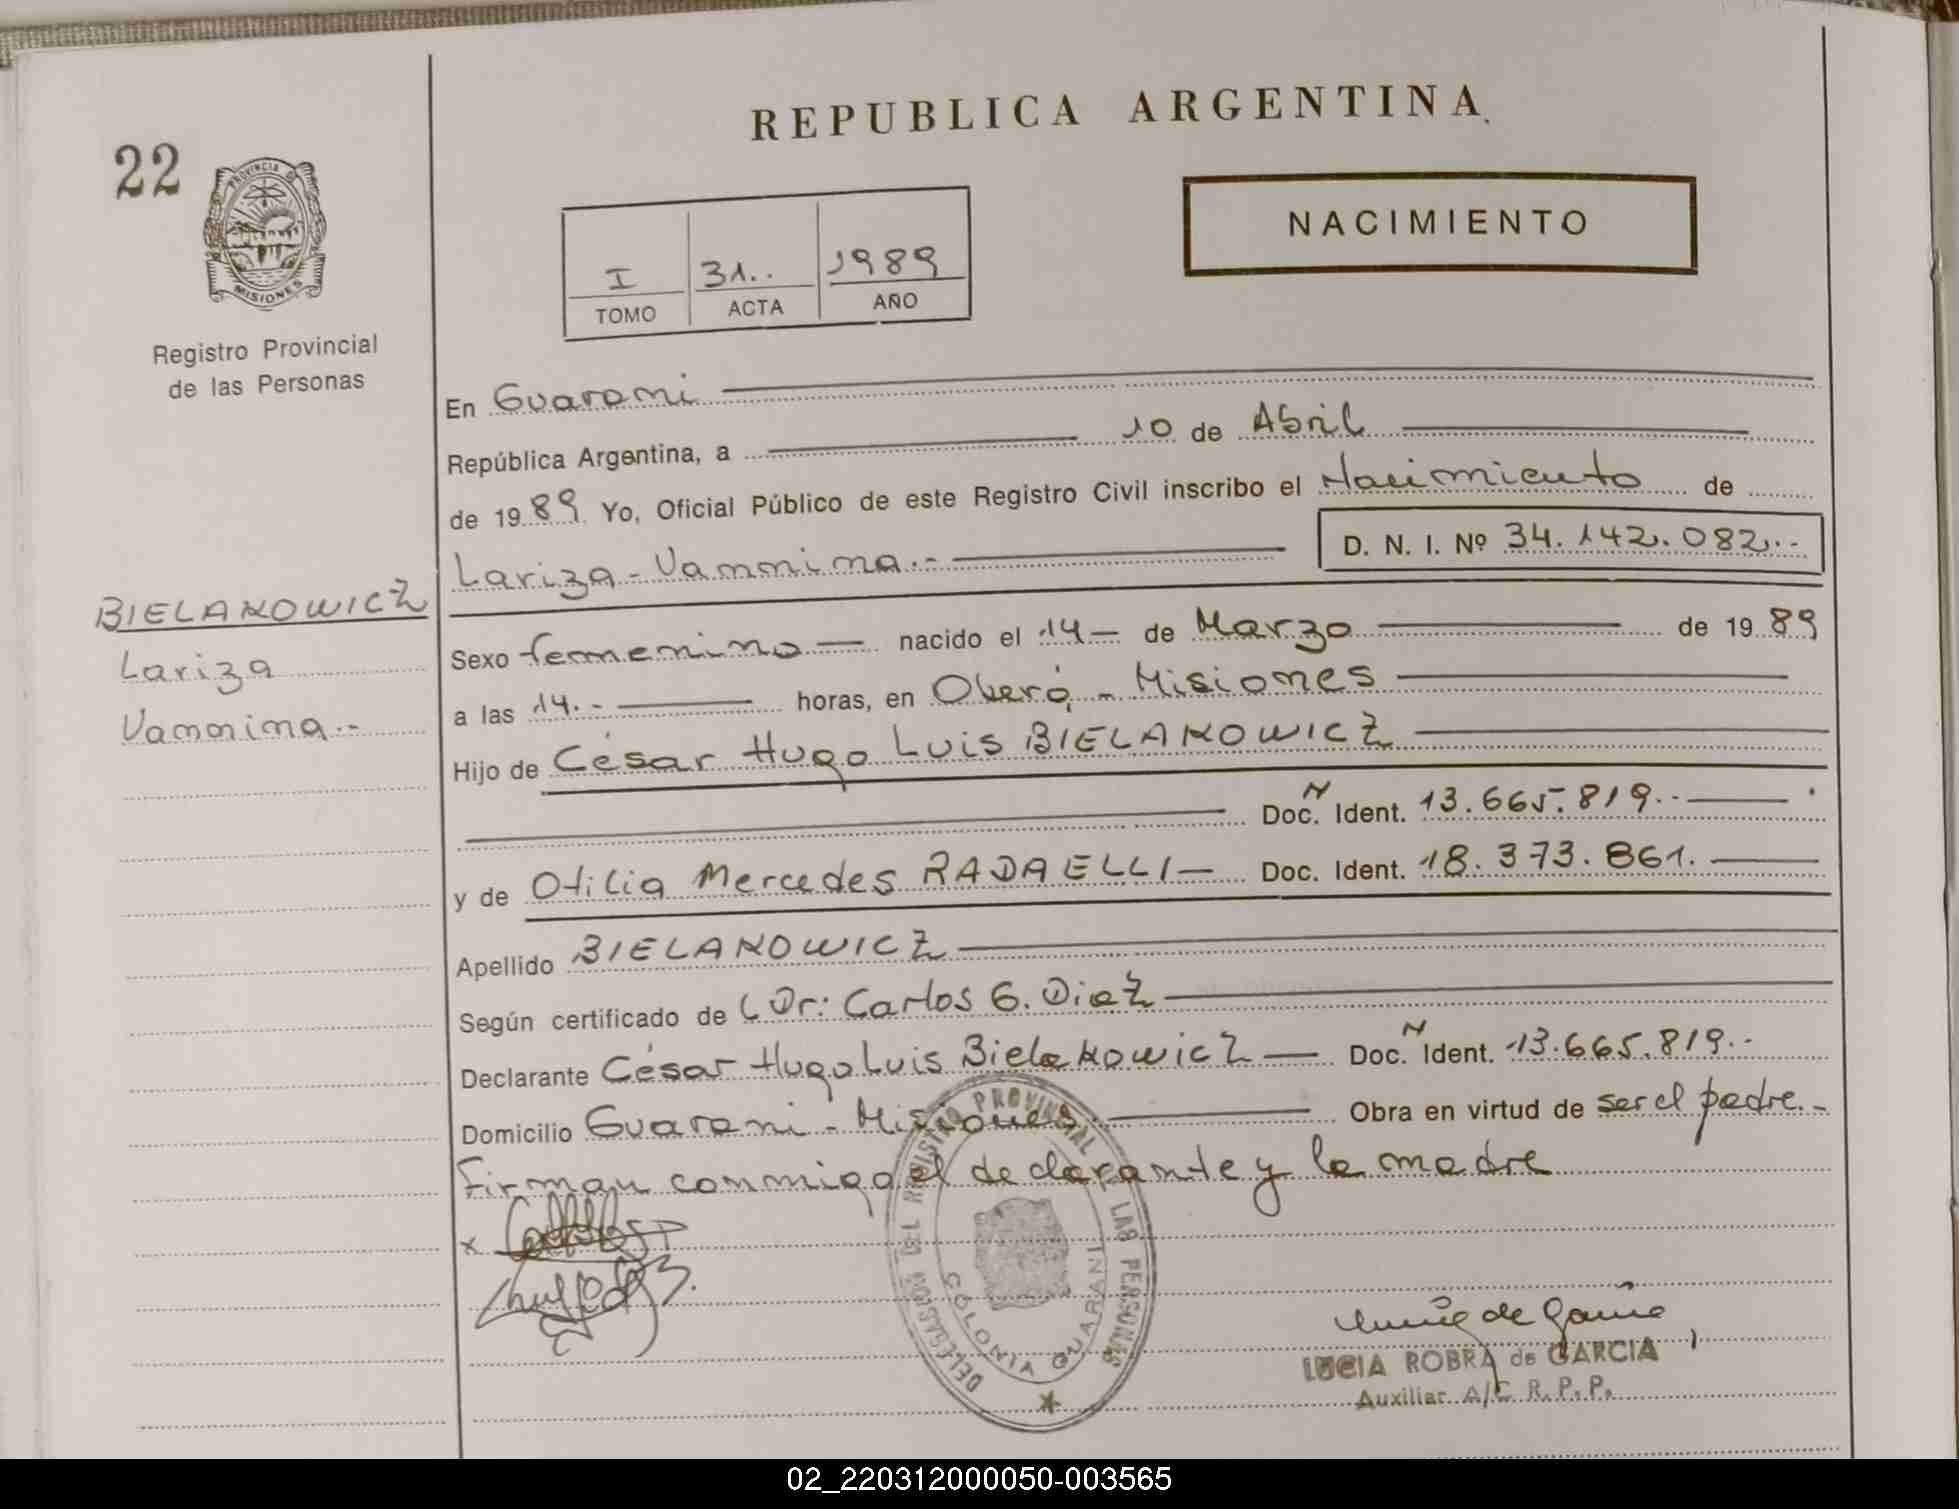 REPUBLICA ARGENTINA
22
PROVINCIA DE
MISIONES
Registro Provincial
de las Personas
I 31.. 1989
TOMO ACTA AÑO
NACIMIENTO
En Guarani
República Argentina, a 10 de Abril
de 1989 Yo, Oficial Público de este Registro Civil inscribo el Nacimiento de
Lariza - Vannina.- D. N. I. Nº 34.142.082.-
BIELAKOWICZ
Lariza
Vannina.-
Sexo femenino nacido el 14 de Marzo de 1989
a las 14.- horas, en Oberá, - Misiones
Hijo de César Hugo Luis BIELAKOWICZ
Doc. N Ident. 13.665.819.-
y de Otilia Mercedes RADAELLI Doc. Ident. 18.373.861.
Apellido BIELAKOWICZ
Según certificado de Dr: Carlos G. Diaz
Declarante César Hugo Luis Bielakowicz Doc. N Ident. 13.665.819.-
Domicilio Guarani - Misiones Obra en virtud de ser el padre.-
Firman conmigo el declarante y la madre
x
DELEGACION DEL REGISTRO PROVINCIAL DE LAS PERSONAS
COLONIA GUARANI
LUCIA ROBRA de GARCIA
Auxiliar A/C R.P.P.
02_220312000050-003565